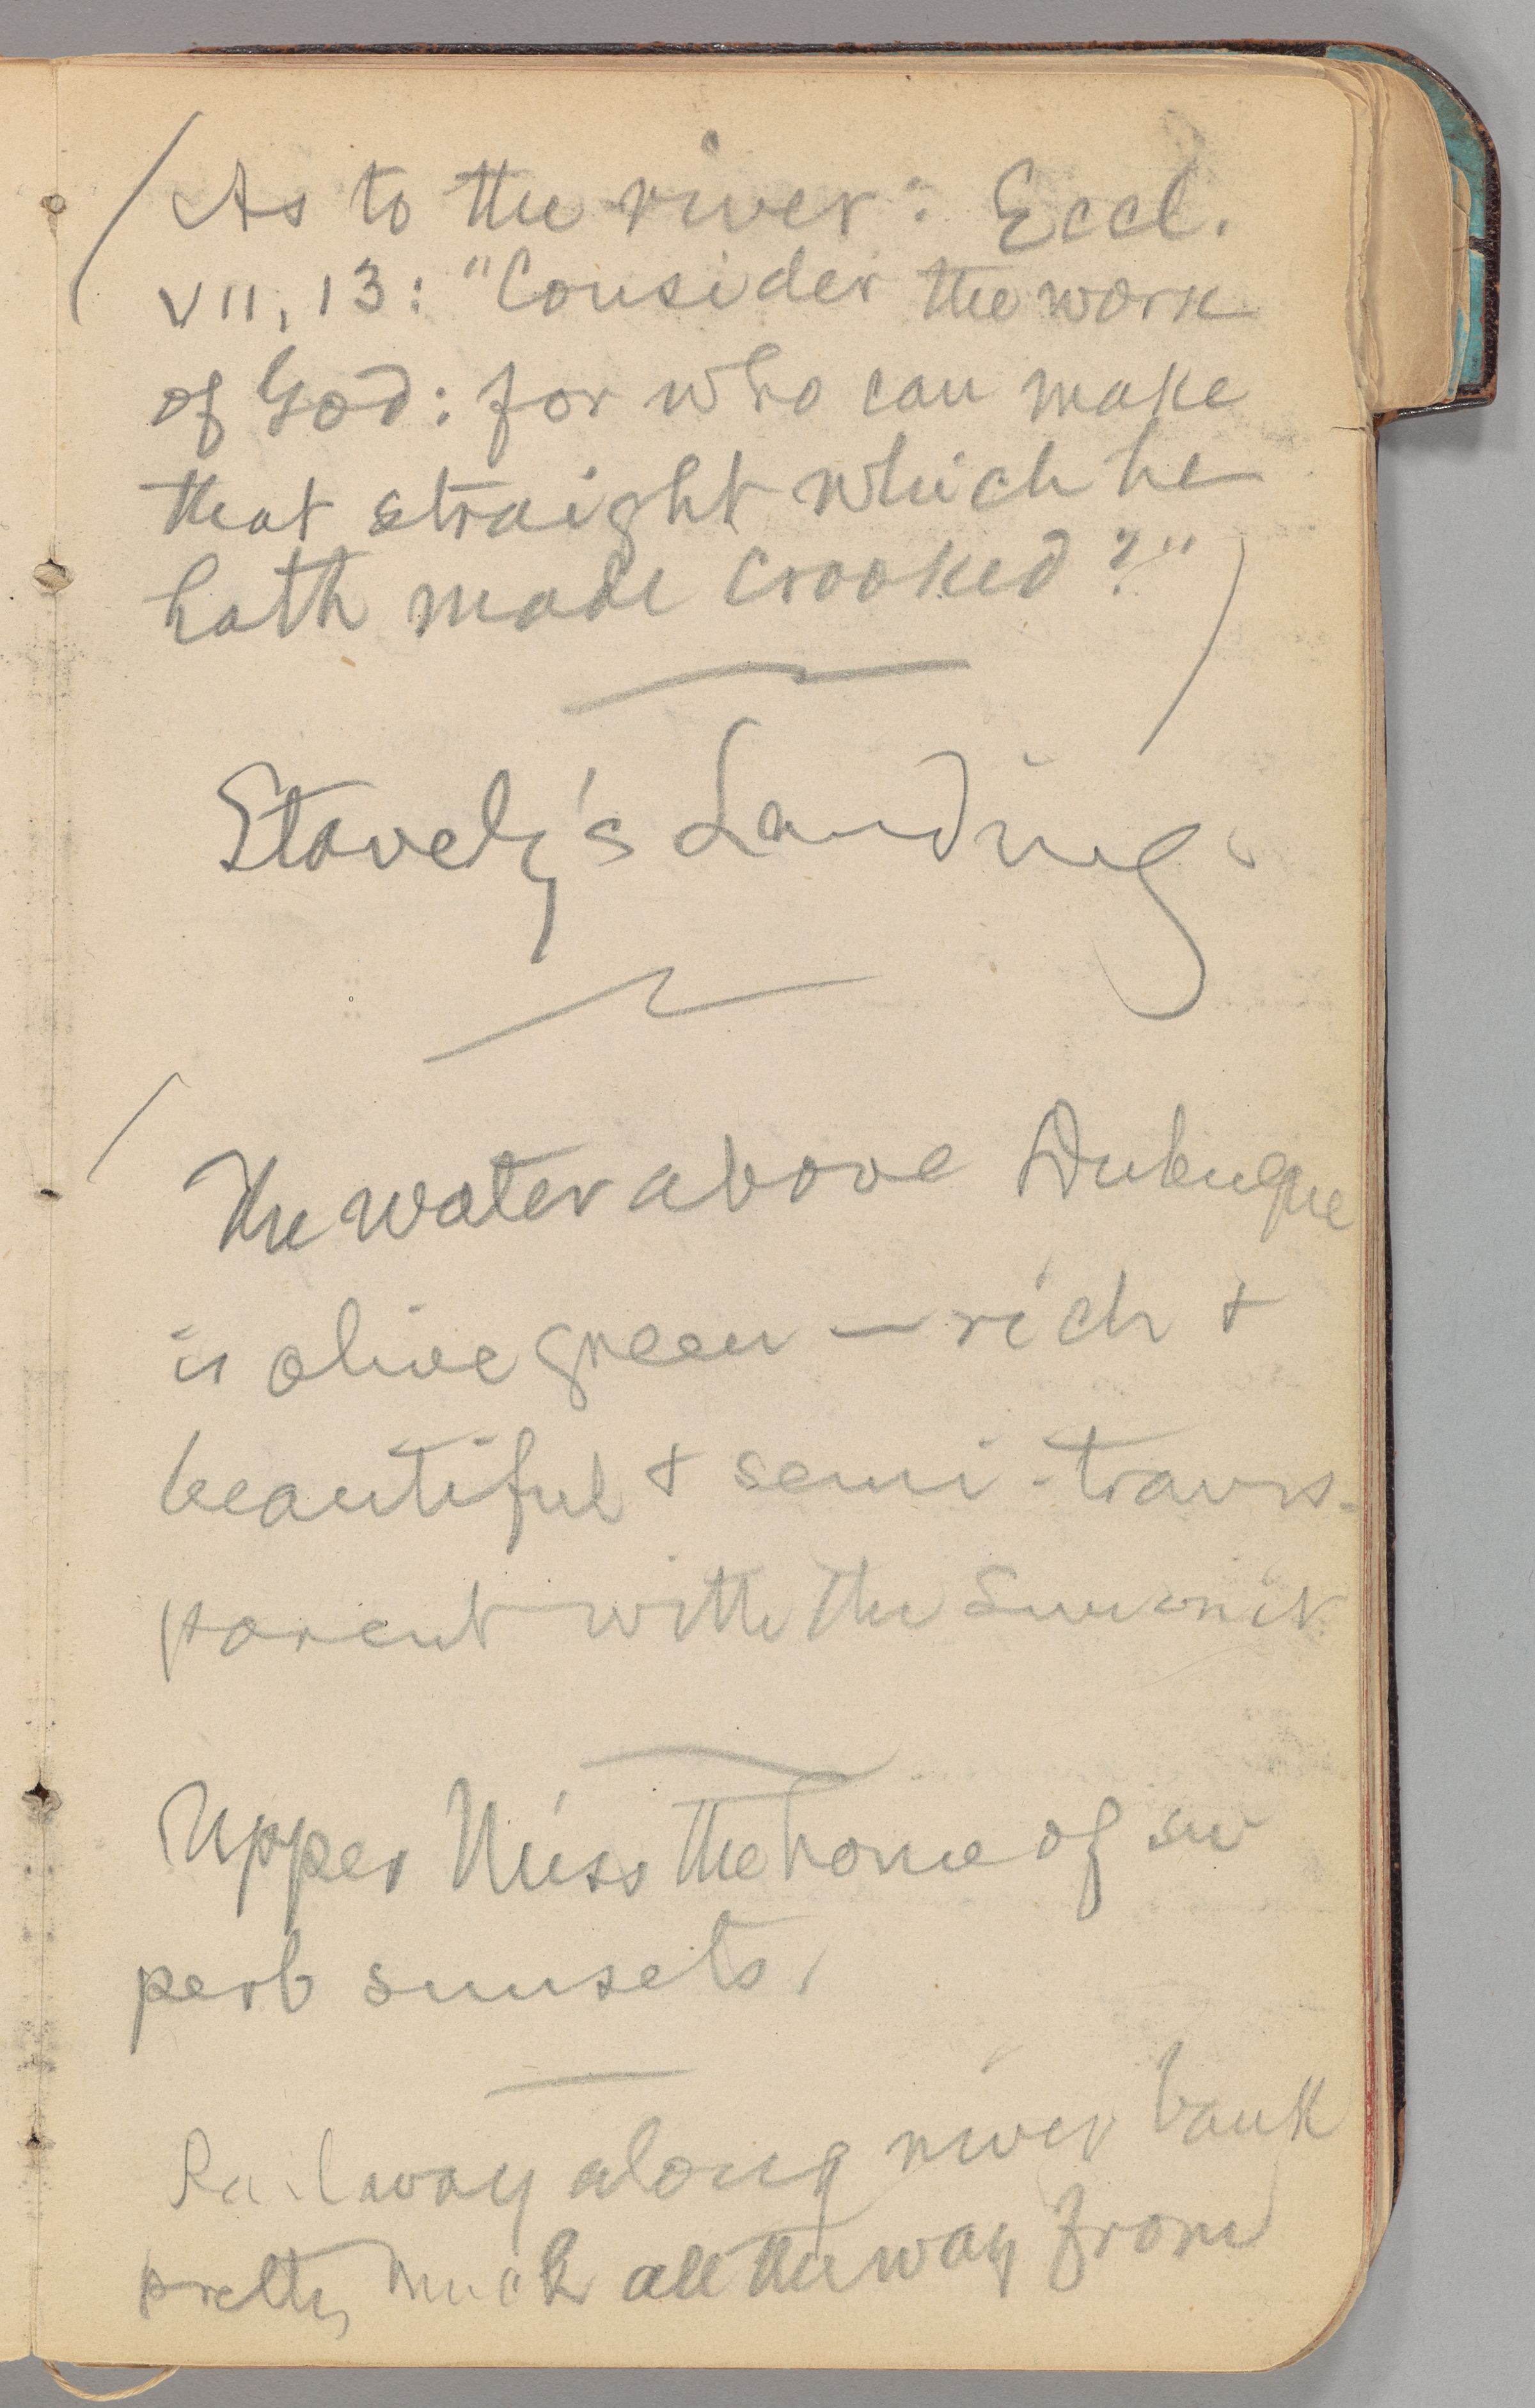 (As to the river: Eccl.
VII, 13: "Consider the work
of God: for who can make
that straight which he
hath made crooked?")
Stavely's Landing.
(The water above Dubuque
is olive green — rich +
beautiful + semi-trans-
parent with the sun on it.
Upper Miss the home of su
perb sunsets.
Railway along river bank
pretty much all the way from